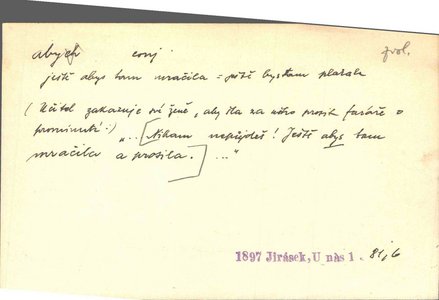 abych conj. zvol.
ještě abys tam mračila = ještě bys tam plakala
(Učitel zakazuje své ženě, aby šla za něho prosit faráře o
prominutí:) „... [Nikam nepůjdeš! Ještě abys tam
mračila a prosila.] ..."
1897 Jirásek, U nás 1 - 81, 6